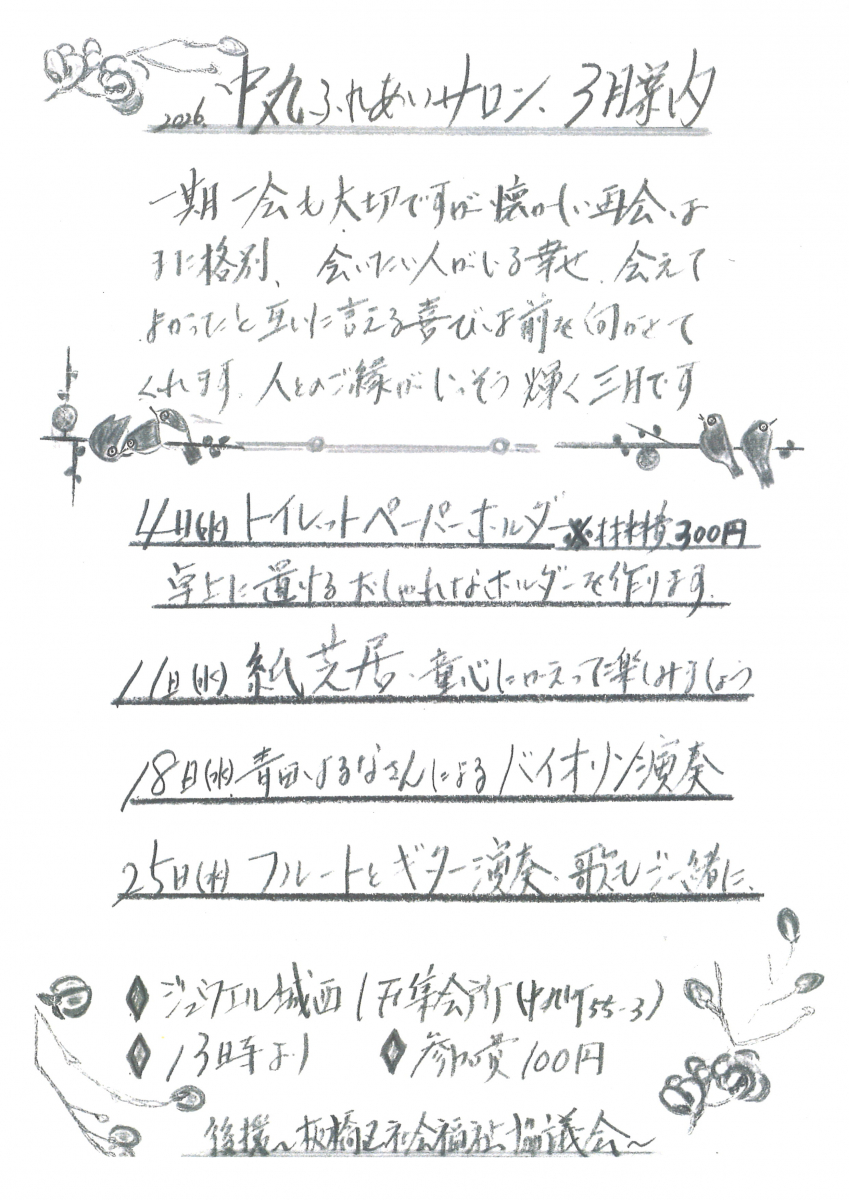 2026. 中丸ふれあいサロン、3月案内
一期一会も大切ですが懐かしい再会は
まに格別、会いたい人がいる幸せ、会えて
よかったと互いに言える喜びは前を向かせて
くれます、人とのご縁がいっそう輝く三月です
4日(水)トイレットペーパーホルダー ※材料費300円
卓上に置けるおしゃれなホルダーを作ります、
11日(水)紙芝居、童心にかえって楽しみましょう
18日(水)青田はるなさんによるバイオリン演奏
25日(水)フルートとギター演奏、歌もご一緒に、
◆ジュウエル城西1F集会所(中丸町55-3)
◆13時より ◆参加費100円
後援〜板橋区社会福祉協議会〜